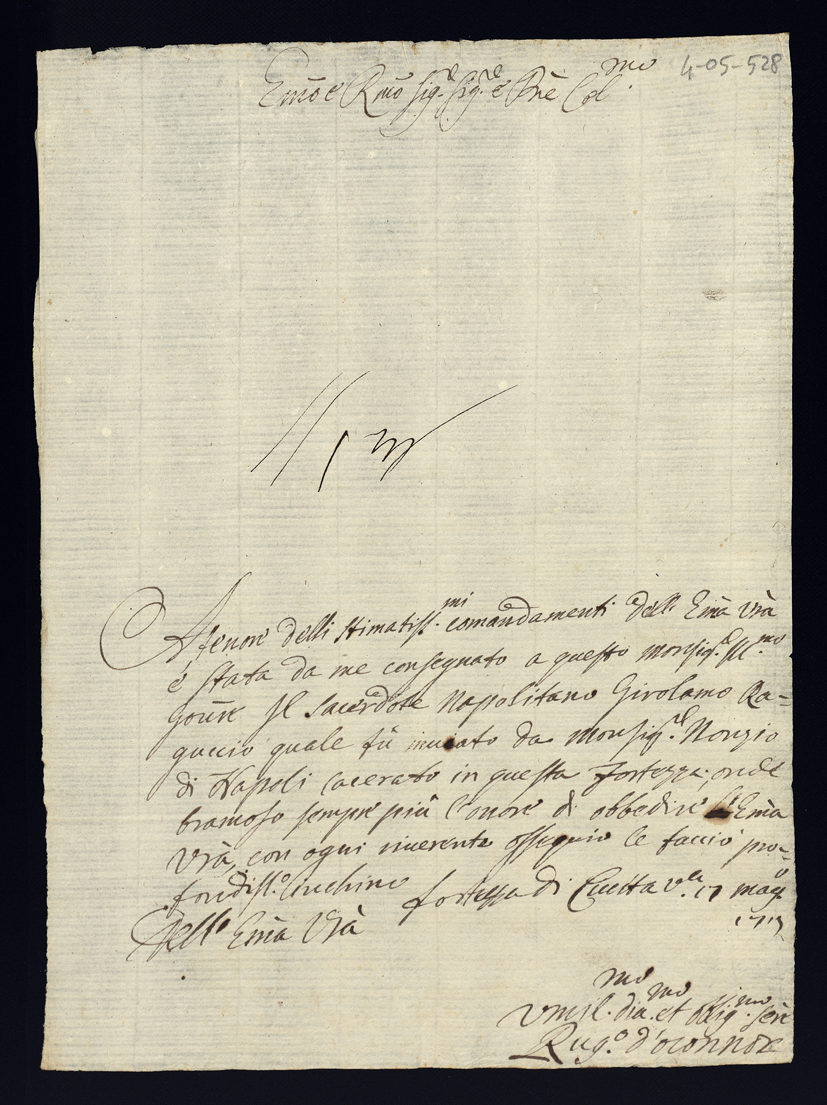 4-05-528
Emõ e Rmõ Sig.r Sig.re e Pñe Col.mo
A tenore delli stimatiss.mi comandamenti dell. Emã Vrã
è stata da me consegnato a questo monsig.r Ill.mo
Goũre Il sacerdote Napolitano Girolamo Ra=
guccio quale fù inuiato da monsig.r Nonzio
di Napoli carcerato in questa fortezza; onde
bramoso sempre più l'onore di obbedire l'Emã
Vrã, con ogni riuerente ossequio le faccio pro=
fondiss.o inchino
fortezza di Ciuitta V.a 17 mag.o
1713
Dell' Emã Vrã
Vmil.mo diu.mo et oblig.mo serẽ
Rug.o d'oconnor